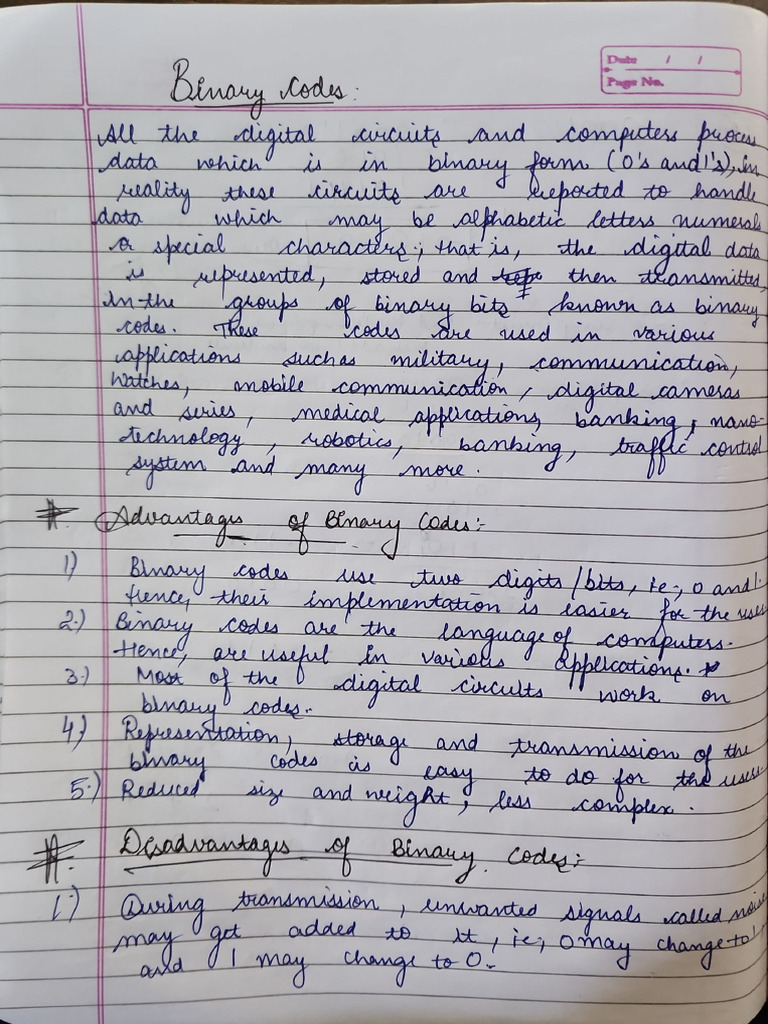 Date / /
Page No.
Binary Codes:
All the digital circuits and computers process
data which is in binary form (0's and 1's), In
reality these circuits are reported to handle
data which may be alphabetic letters numerals
or special characters; that is, the digital data
is represented, stored and then transmitted,
in the groups of binary bits known as binary
codes. These codes are used in various
applications such as military, communication,
watches, mobile communication, digital cameras
and series, medical applications, banking, nano-
technology, robotics, banking, traffic control
system and many more.
#. Advantages of Binary Codes:-
1) Binary codes use two digits/bits, ie;, 0 and 1.
Hence, their implementation is easier for the user
2.) Binary codes are the language of computers.
Hence, are useful in various applications.
3.) Most of the digital circuits work on
binary codes.
4.) Representation, storage and transmission of the
binary codes is easy to do for the user.
5.) Reduced size and weight, less complex.
#. Disadvantages of Binary Codes:-
1.) During transmission, unwanted signals called noise
may get added to it, ie;, 0 may change to 1,
and 1 may change to 0.